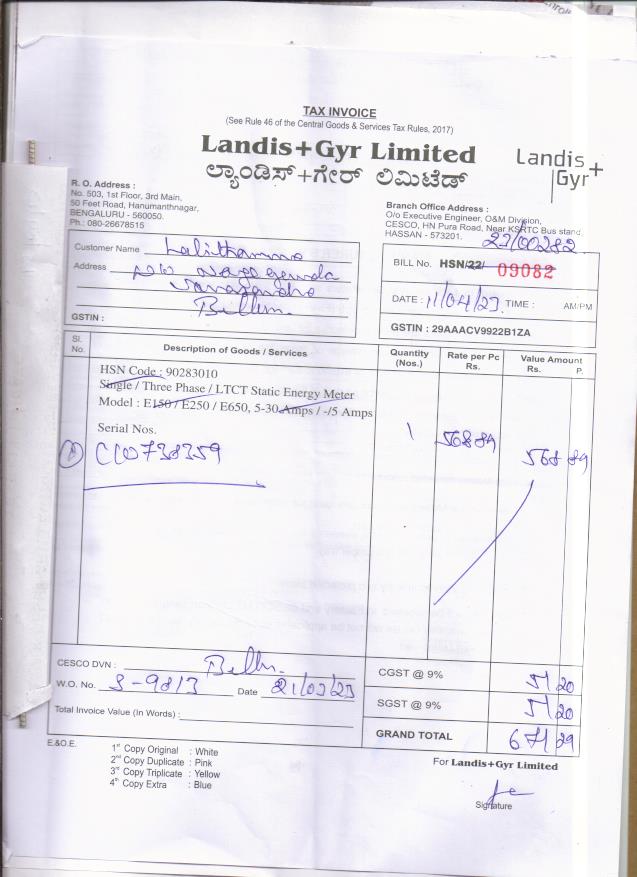 TAX INVOICE
(See Rule 46 of the Central Goods & Services Tax Rules, 2017)
Landis+Gyr Limited
ಲ್ಯಾಂಡಿಸ್+ಗೇರ್ ಲಿಮಿಟೆಡ್
Landis+
Gyr
R. O. Address :
No. 503, 1st Floor, 3rd Main,
50 Feet Road, Hanumanthnagar,
BENGALURU - 560050.
Ph.: 080-26678515
Branch Office Address :
O/o Executive Engineer, O&M Division,
CESCO, HN Pura Road, Near KSRTC Bus stand,
HASSAN - 573201.
23/00282
Customer Name Lalithamma
Address
GSTIN :
BILL No. HSN/22/ 09082
DATE : 11/04/23 TIME : AM/PM
GSTIN : 29AAACV9922B1ZA
Sl. No. Description of Goods / Services Quantity (Nos.) Rate per Pc Rs. Value Amount Rs. P.
HSN Code : 90283010
Single / Three Phase / LTCT Static Energy Meter
Model : E150 / E250 / E650, 5-30 Amps / -/5 Amps
Serial Nos.
1 568 89 568 89
CC0738359
CESCO DVN :
W.O. No. S-9813 Date 21/03/23
Total Invoice Value (In Words) :
CGST @ 9% 51 20
SGST @ 9% 51 20
GRAND TOTAL 671 29
E.&O.E.
1st Copy Original : White
2nd Copy Duplicate : Pink
3rd Copy Triplicate : Yellow
4th Copy Extra : Blue
For Landis+Gyr Limited
Signature